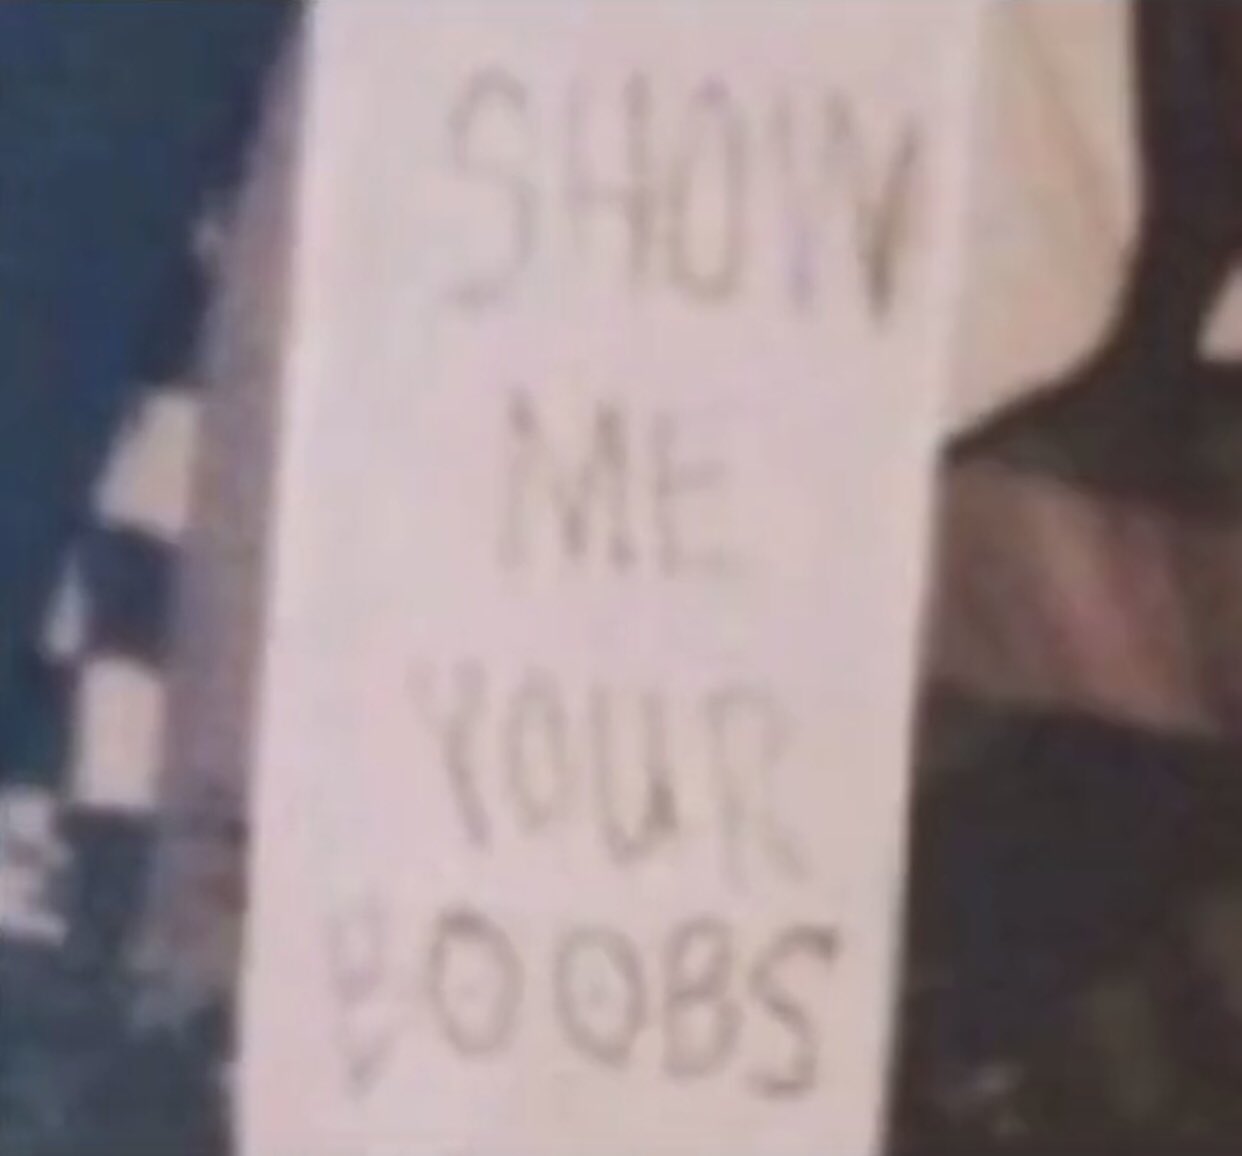 SHOW
ME
YOUR
BOOBS